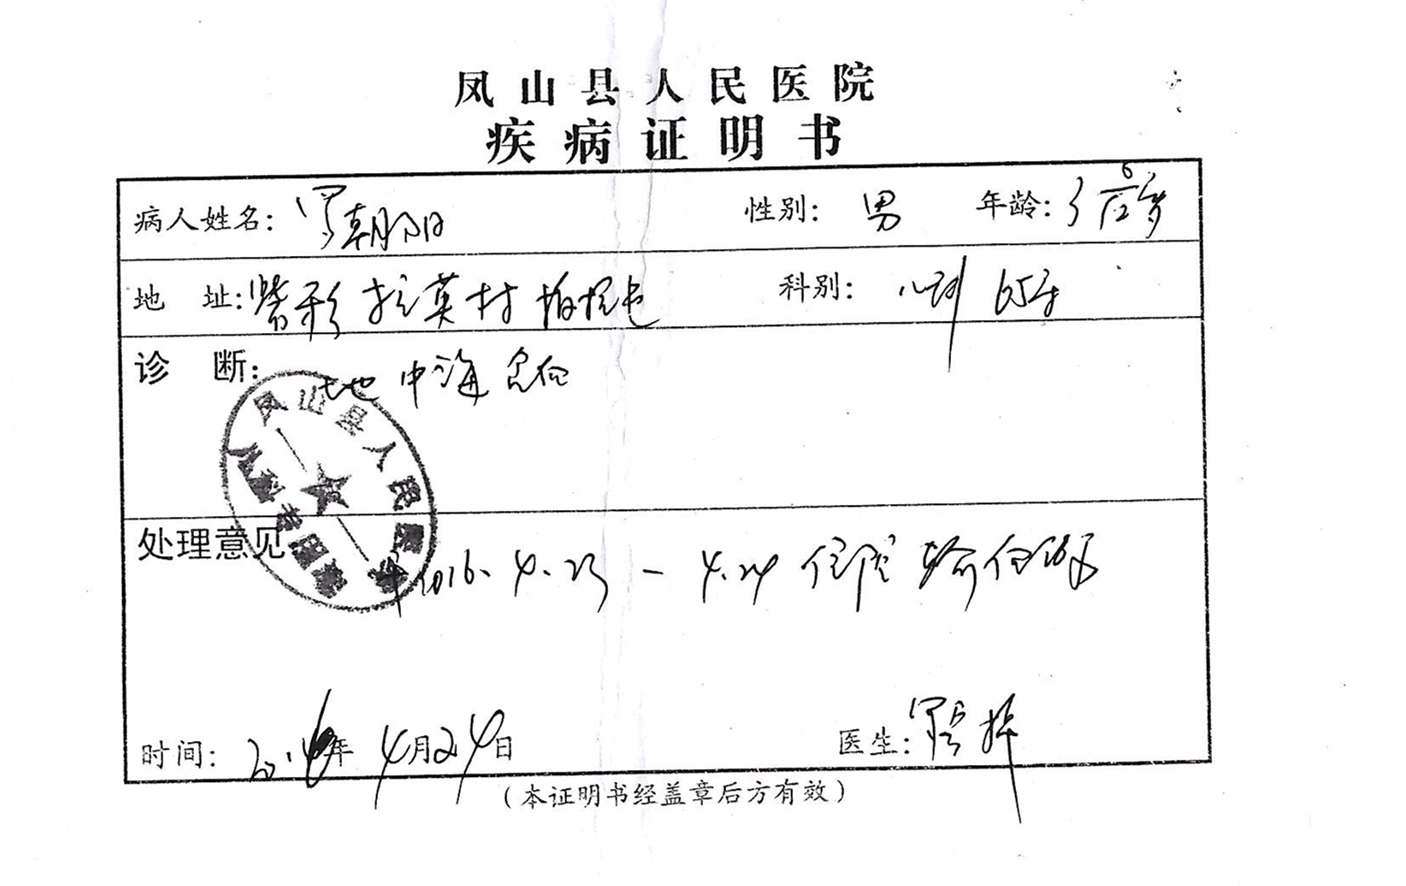 凤山县人民医院
疾病证明书
病人姓名: 罗朝阳 性别: 男 年龄: 岁
地 址: 拉英村 科别: 儿科
诊 断: 地中海贫血
凤山县人民医院
处理意见
2016.4.23 - 4.24 住院输血
时间: 2016年4月24日 医生: 罗
(本证明书经盖章后方有效)